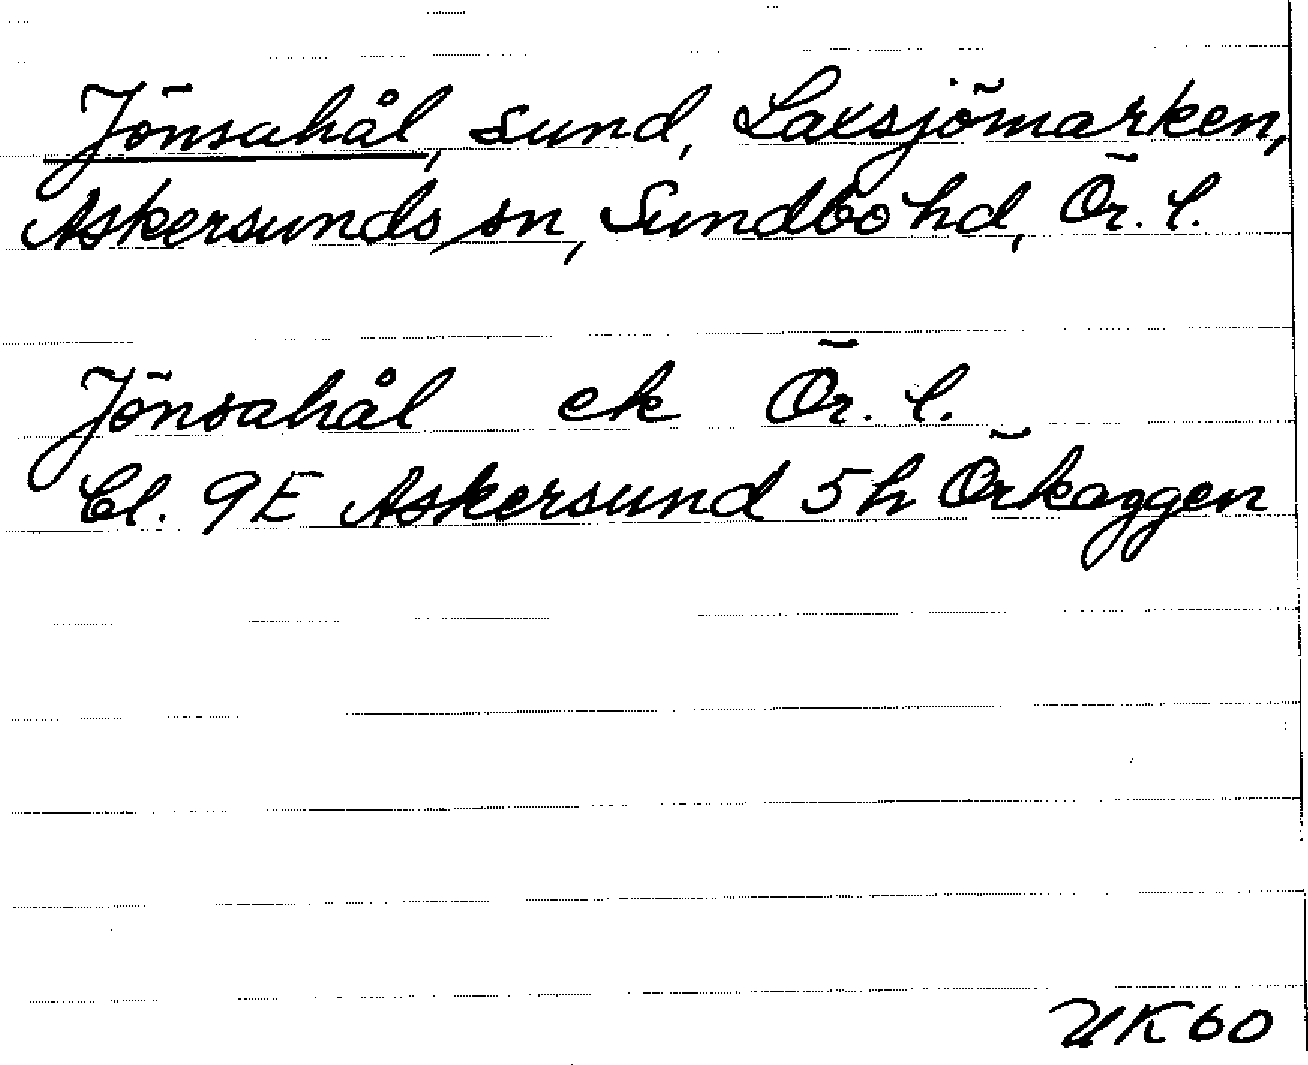 Jönsahål, sund, Laxsjömarken,
Askersunds sn, Sundbo hd, Ör. l.
Jönsahål ek Ör. l.
Bl. 9E Askersund 5h Örkaggen
UK60